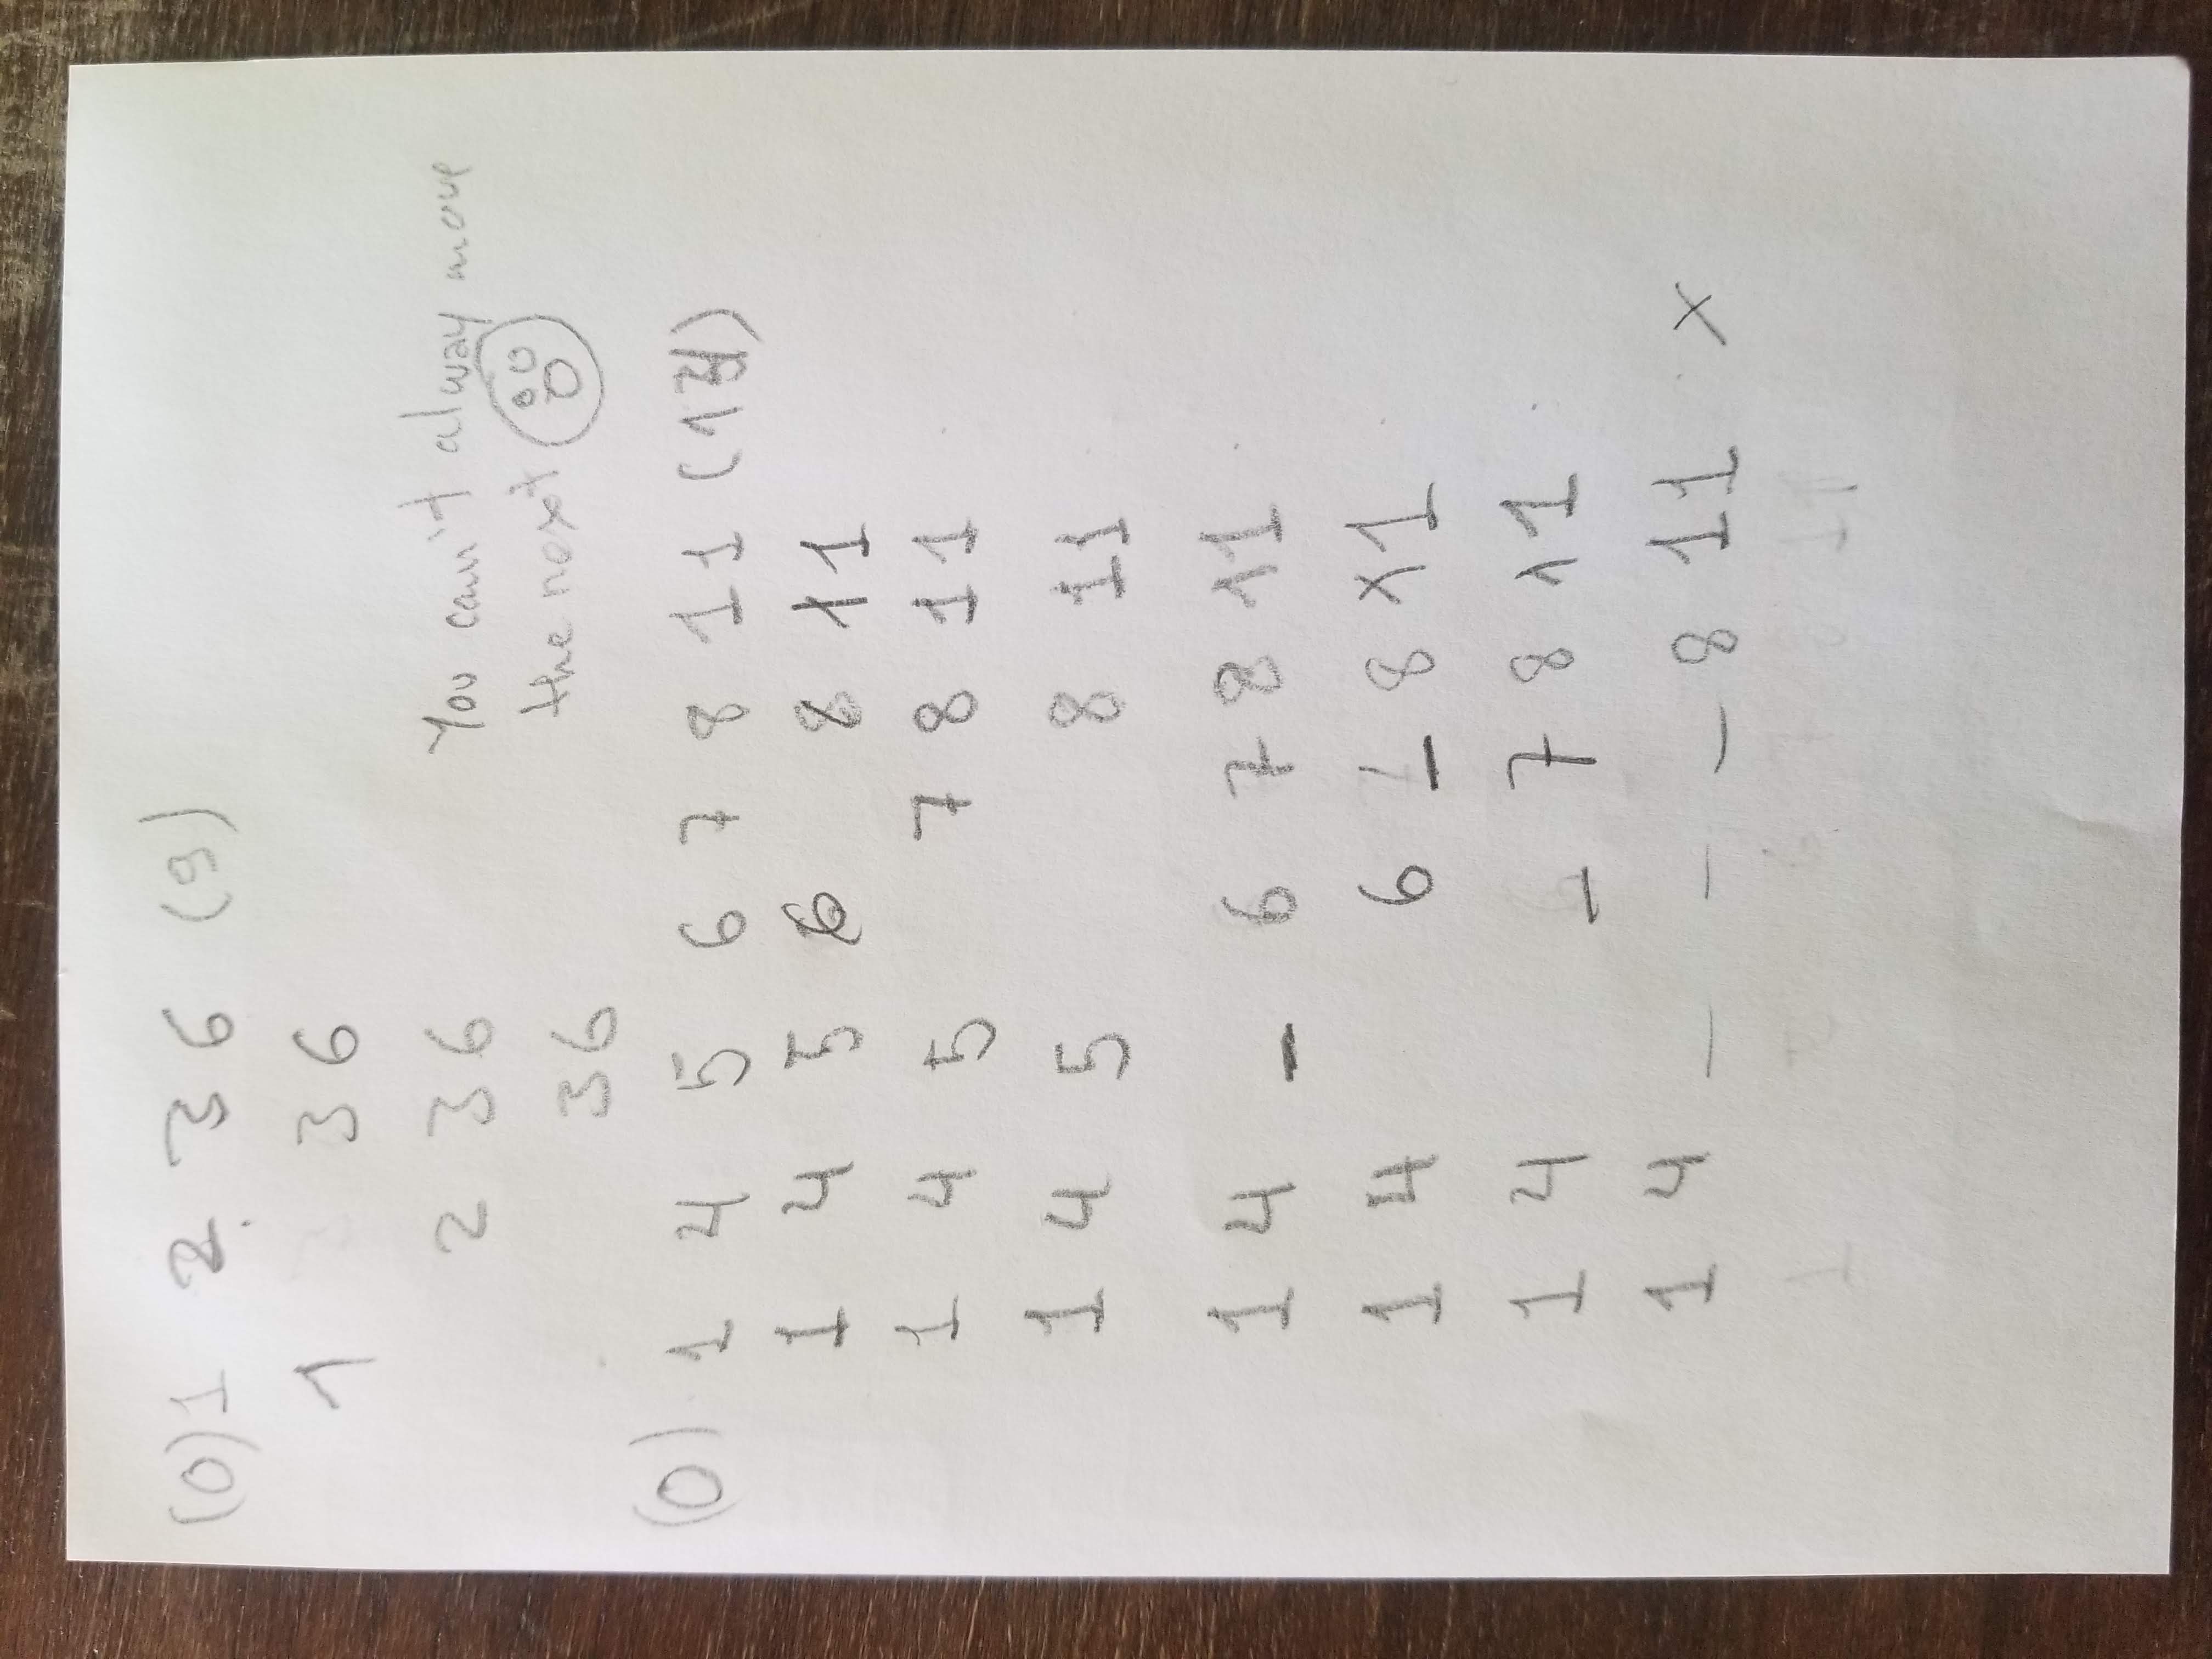 (0) 1 2 3 6 (9)
1 3 6
2 3 6
You can't alway move
the next
3 6
(0) 1 4 5 6 7 8 11
1 4 5 6 8 11
1 4 5 7 8 11
1 4 5 8 11
1 4 _ 6 7 8 11
1 4 6 _ 8 11
1 4 _ 7 8 11
1 4 _ _ _ 8 11 x